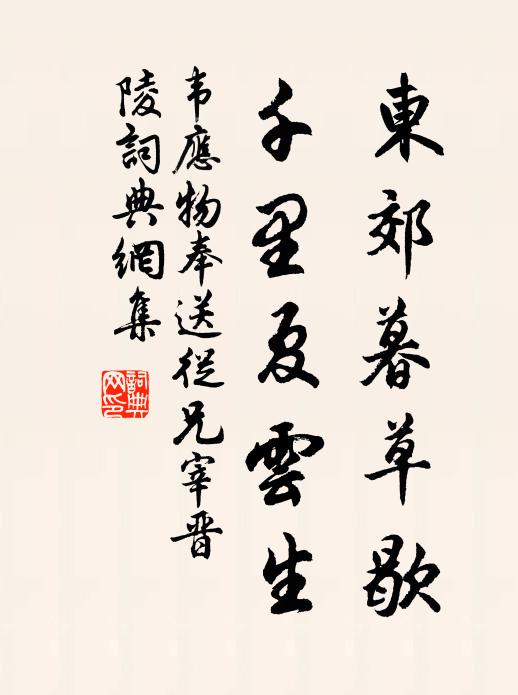 東郊暮草歇
千里夏雲生
韦應物奉送從兄宰晋
陵詞典網集
詞典
网印